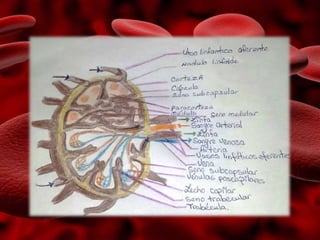 Vaso linfantico aferente
Nodulo linfoide
Corteza
Cápsula
Seno subcapsular
Paracorteza
Seno medular
Linfa
Sangre Arterial
Linfa
Sangre Venosa
Arteria
Vasos linfáticos eferentes
Vena
Seno subcapsular
Vénulas poscapilares
Lecho capilar
Seno trabecular
Trabécula.